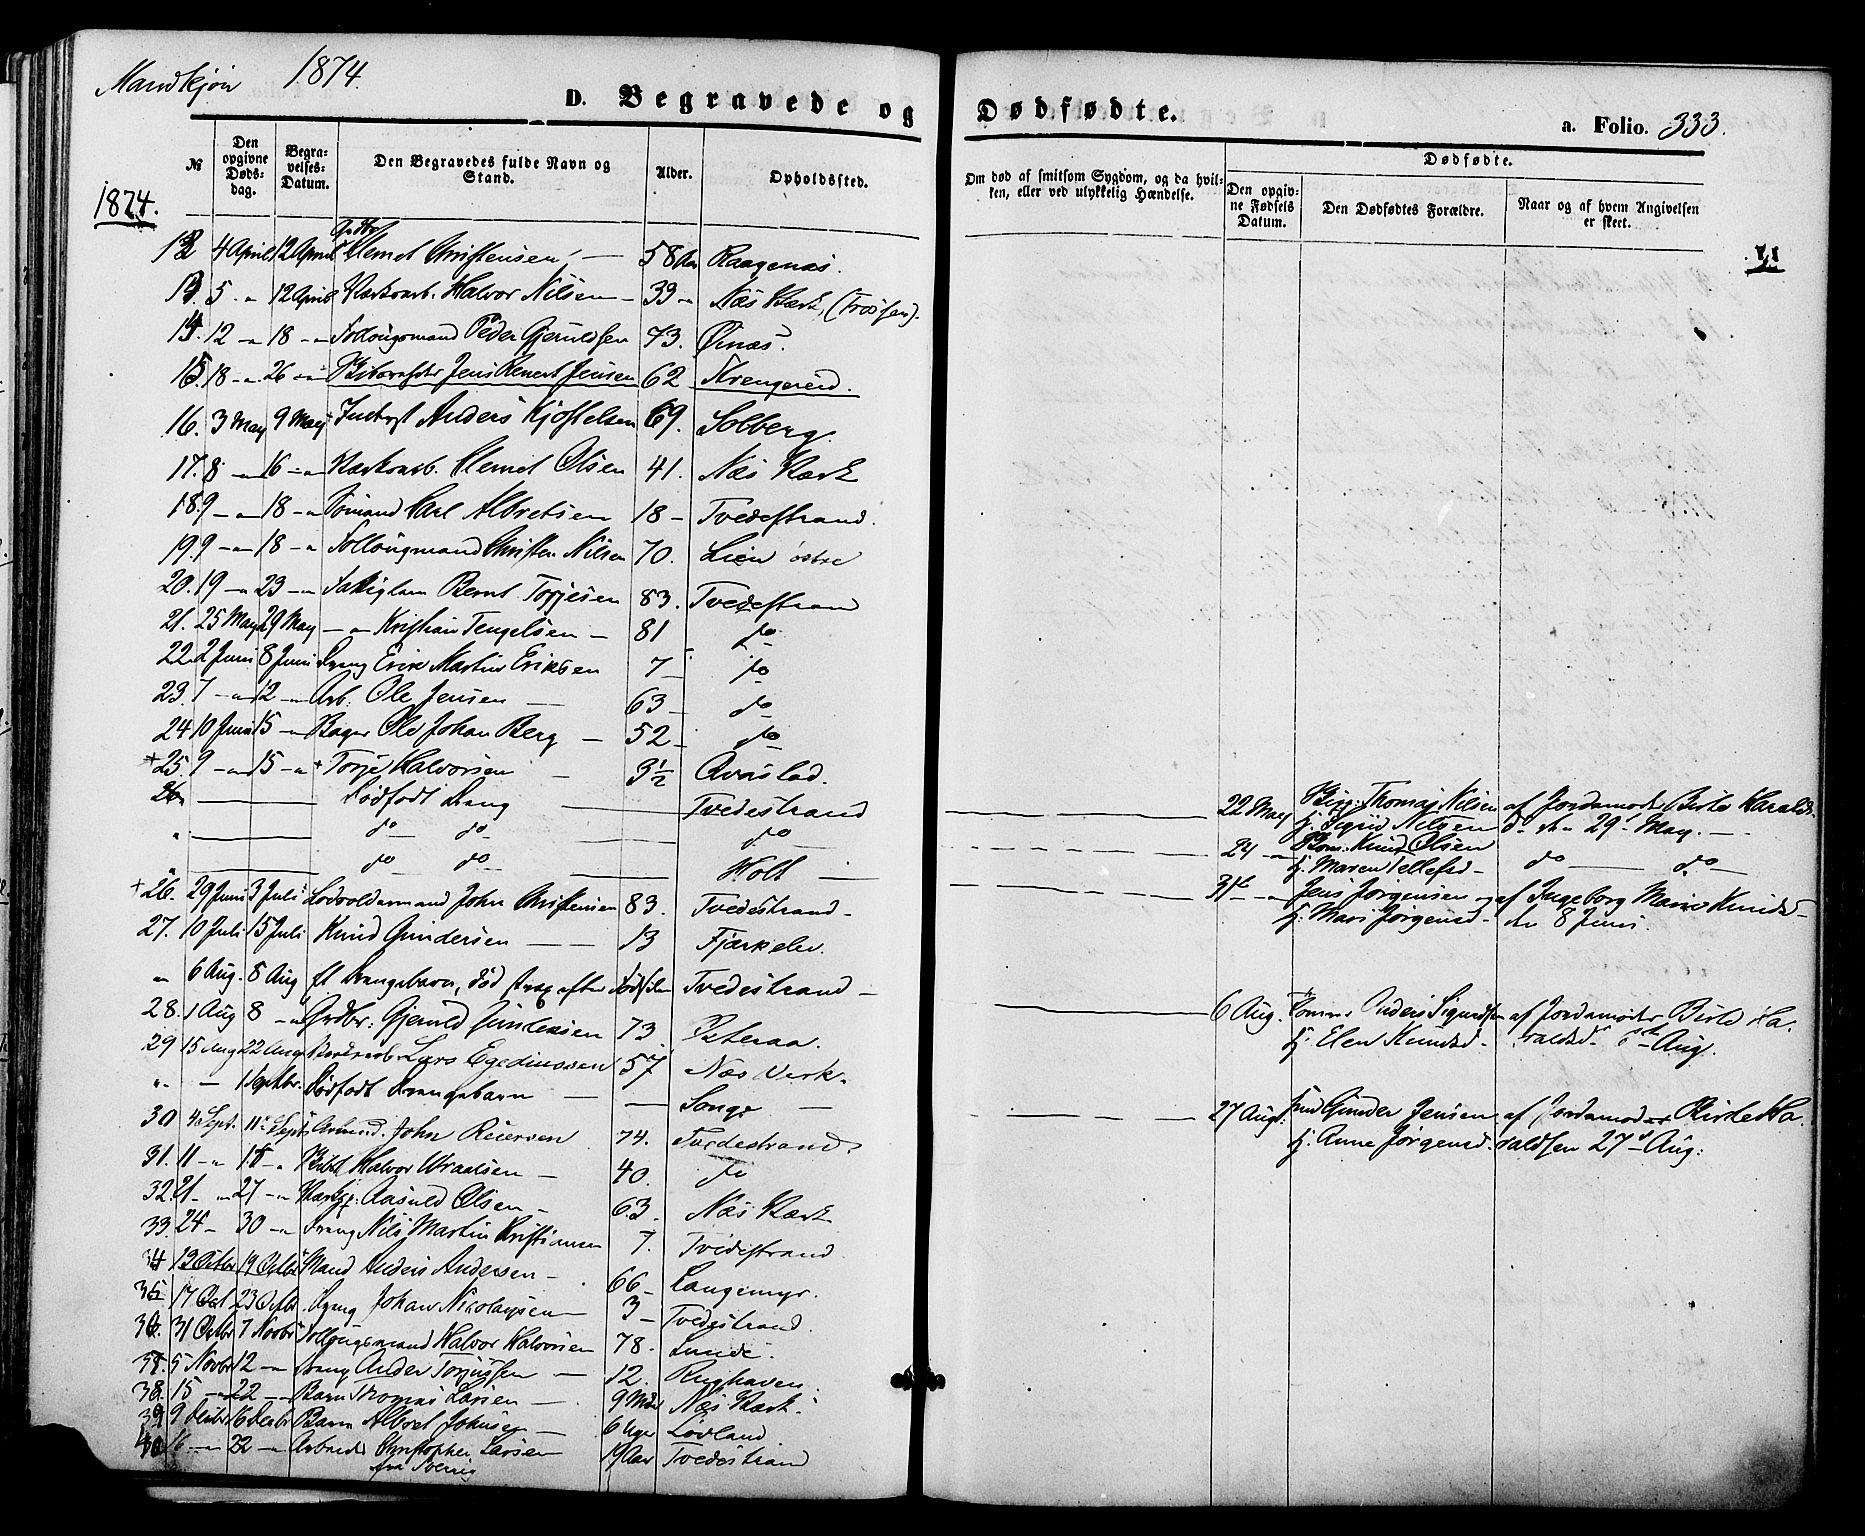 Mandkjøn 1874.
D. Begravede og Dødfødte.
a. Folio. 333.
№
Den opgivne Døds-dag.
Begra-velses-Datum.
Den Begravedes fulde Navn og Stand.
Alder.
Opholdssted.
Om død af smitsom Sygdom, og da hvil-ken, eller ved ulykkelig Hændelse.
Dødfødte.
Den opgiv-ne Fødsels Datum.
Den Dødfødtes Forældre.
Naar og af hvem Angivelsen er skeet.
1874.
12 4 April 12 April Grdbr Clemet Christensen 58 Aar Raagenæs.
13 5 - " 12 April Værksarb. Halvor Nilsen - 39 " Næs Værk, (Fossen).
14. 12 - " 18 - " Follougsmand Peder Gjeruldsen 73. Østnæs.
15. 18 - " 26 - " Jens Jensen 62
16. 3 May 9 May Inderst Anders Kjøstelsen 69. Solberg.
17. 8 - " 16 - " Værksarb. Clemet Olsen 41. Næs Værk
18. 9 - " 18 - " Sømand Carl Albretsen 18 - Tvedestrand.
19. 9 - " 18 - " Follougmand Christen Nilsen 70. Lien østre
20. 19 - " 23 - " Fattiglem Bernt Torjesen 83. Tvedestrand
21. 25 May 29 May - " Kristian Tengelsen - 81 do
22. 2 Juni 8 Juni Dreng Erik Martin Eriksen 7 - do
23. 7 - " 12 - " Arb. Ole Jensen 63 - do
24 10 Juni 15 - " Bager Ole Johan Berg - 52 - do
+ 25. 9 - " 15 - " + Torje Halvorsen 3½
26 Dødfødt Dreng Tvedestrand 22 May Thomas Nilsen af Jordemoder Birte Haralds-
h. Sigrid Nilsen d. den 29 May.
" do do do 24 - " Knud Olsen
h. Maren Tellefsd - do do
" do do Holt 31te - " Jens Jørgensen og af Ingeborg Marie Knudsd -
h. Mari Jørgensd - den 8 Juni.
+ 26. 29 Juni 3 Juli John Christensen 83. Tvedestrand -
27. 10 Juli 15 Juli Knud Gundersen 13 Fjærkelv.
" 6 Aug. 8 Aug Et Drengebarn, død strax efter Fødselen Tvedestrand - 6 Aug. Anders Sigurdsen af Jordemoder Birte Ha-
h. Elen Knudsd - raldsd 8de Aug.
28. 1 Aug 8 - " Grdbr: Gjeruld Gundersen 73.
29 15 Aug 22 Aug Værksarb. Lars Egediussen 57 Næs Værk.
" - 1 Septbr. Dødfødt Drengebarn Songe 27 Aug. Gunder Jensen af Jordemoder Birte Ha-
h. Anne Jørgensd. raldsen 27de Aug:
30 4 Sept. 11 Sept John Reiersen 74. Tvedestrand.
31. 11 - " 18 - " Halvor Wraalsen - 40. do
32. 21 - " 27 - " Aasuld Olsen - 63. Næs Værk
33. 24 - 30 - " Dreng Nils Martin Kristiansen 7. Tvedestrand.
34 13 Octbr 19 Octbr Mand Anders Andersen - 66 - Langemyr.
35 17 Oct 23 Octbr. Dreng Johan Nicolaysen 3 - Tvedestrand.
36. 31 Octbr 7 Novbr Follougsmand Halvor Halvorsen 78. Lunde.
37. 5 Novbr 12 - " Dreng Anders Torjussen - 12.
38. 15 - " 22 - " Barn Thomas Larsen - 9 Mdr Næs Værk.
39. 9 Decbr 16 Decbr Barn Albret Johnsen - 6 Uger Løvland
40. 16 - " 22 - " Arbeider Christopher Larsen 19 Aar Tvedestrand
fra Sverrig